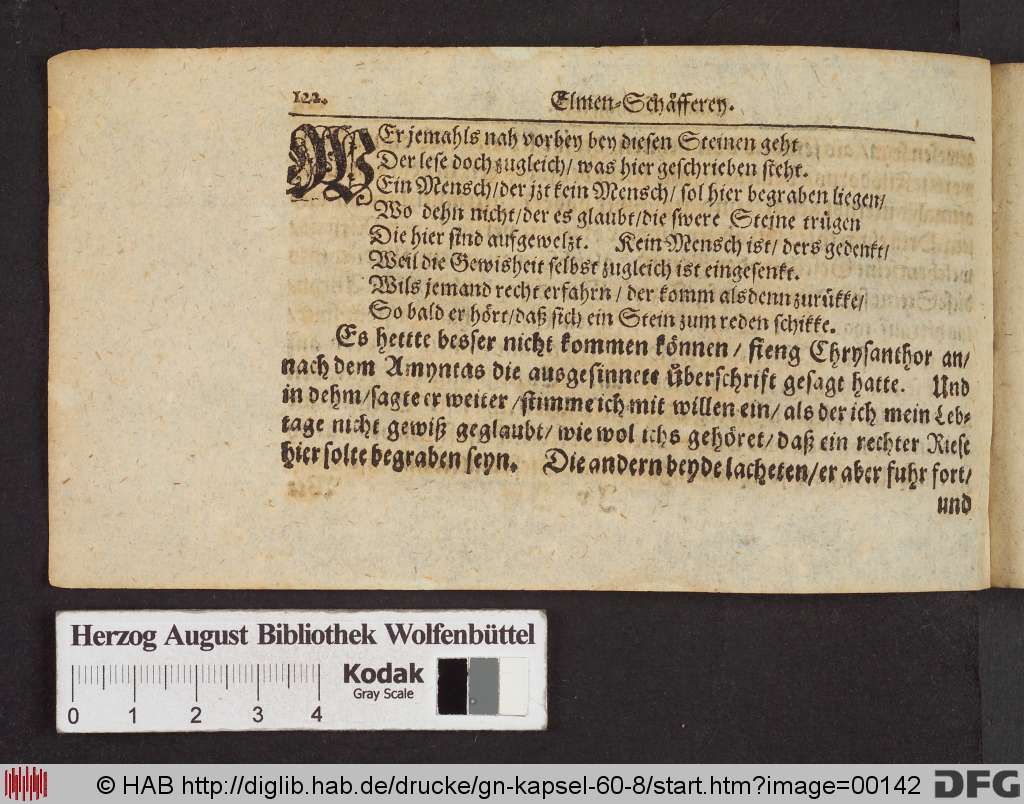 122. Elmen-Schäfferey.
WEr jemahls nah vorbey bey diesen Steinen geht
Der lese doch zugleich/ was hier geschrieben steht.
Ein Mensch/ der jzt kein Mensch/ sol hier begraben liegen/
Wo dehn nicht/ der es glaubt/ die swere Steine trügen
Die hier sind aufgewelzt. Kein Mensch ist/ ders gedenkt/
Weil die Gewisheit selbst zugleich ist eingesenkt.
Wils jemand recht erfahrn/ der komm alsdenn zurükke/
So bald er hört/ daß sich ein Stein zum reden schikke.
Es hettte besser nicht kommen können/ fieng Chrysanthor an/
nach dem Amyntas die ausgesinnete überschrift gesagt hatte. Und
in dehm/ sagte er weiter/ stimme ich mit willen ein/ als der ich mein Leb-
tage nicht gewiß geglaubt/ wie wol ichs gehöret/ daß ein rechter Riese
hier solte begraben seyn. Die andern beyde lacheten/ er aber fuhr fort/
und
Herzog August Bibliothek Wolfenbüttel
Kodak
Gray Scale
0 1 2 3 4
© HAB http://diglib.hab.de/drucke/gn-kapsel-60-8/start.htm?image=00142 DFG